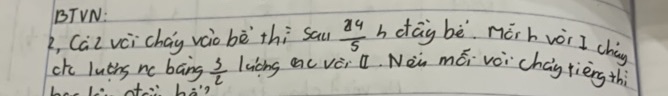 BTVN:
2, Cả 2 vòi chảy vào bể thì sau 24/5 h đầy bể. Mỗi h vòi I chảy
đc lượng nc bằng 3/2 lượng nc vòi II. Nếu mỗi vòi chảy riêng thì